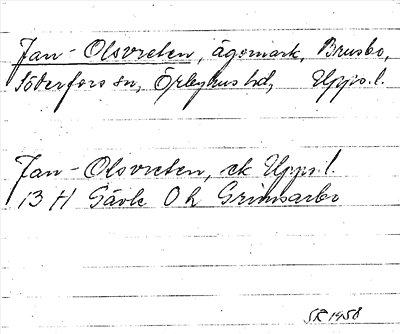 Jan-Olsvreten, ägomark, Brusbo,
Söderfors sn, Örbyhus hd, Upps. l.
Jan-Olsvreten, ek Upps. l.
13 H Gävle 0 h Grimsarbo
SR 1958